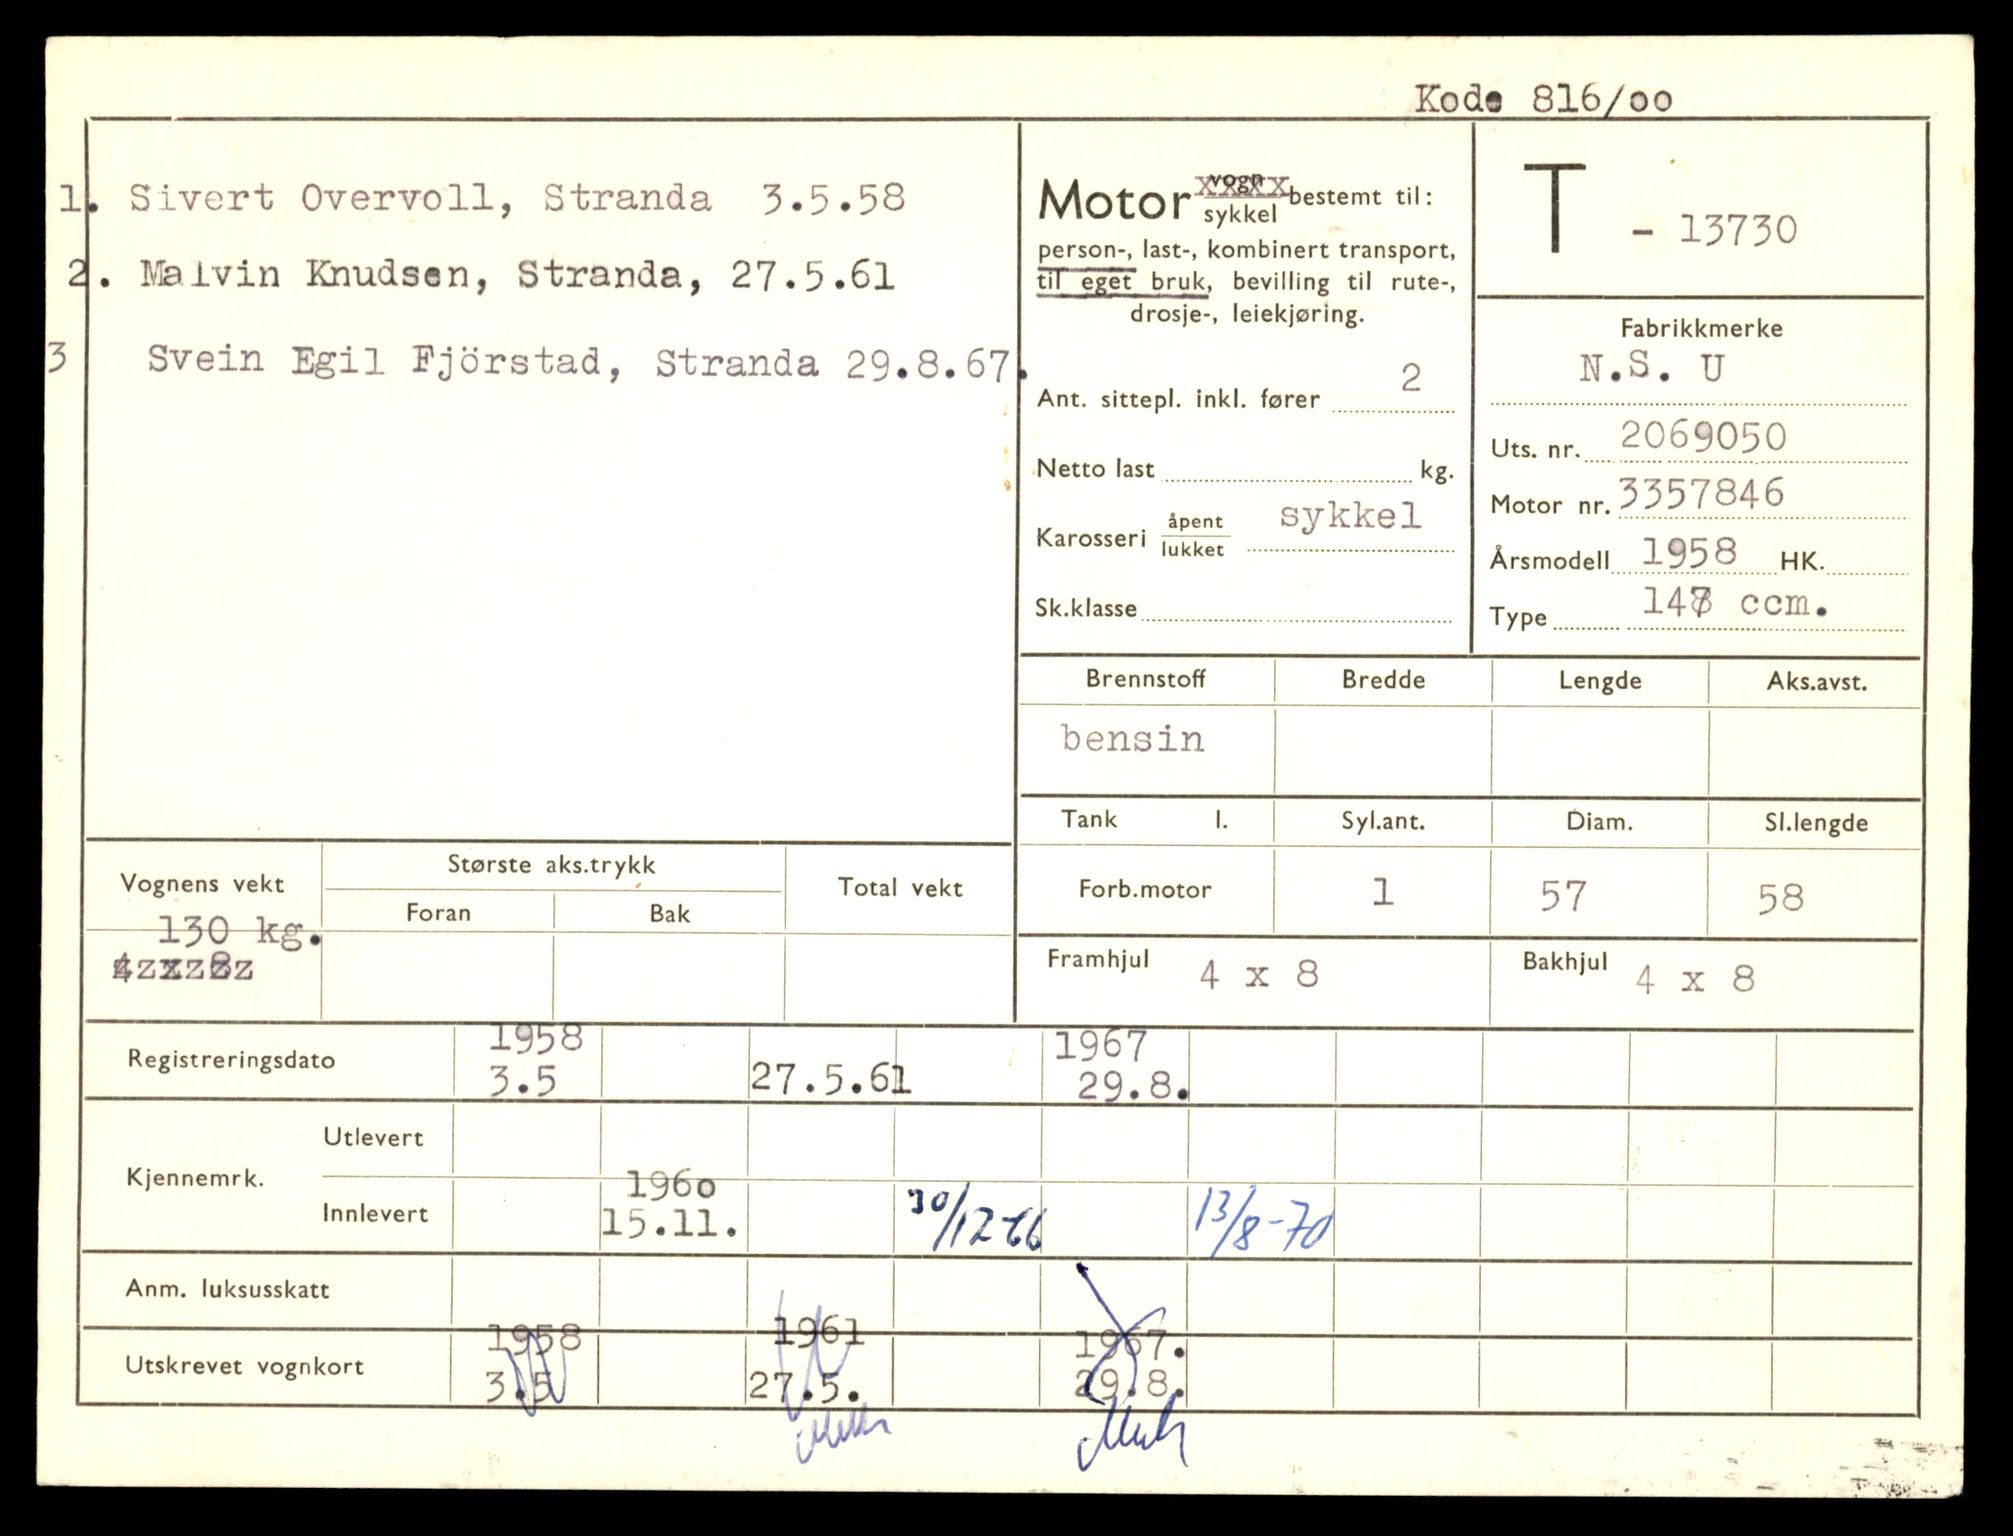 Kode 816/oo
1. Sivert Overvoll, Stranda 3.5.58
2. Malvin Knudsen, Stranda, 27.5.61
3 Svein Egil Fjörstad, Stranda 29.8.67.
Motor vogn sykkel bestemt til:
person-, last-, kombinert transport,
til eget bruk, bevilling til rute-,
drosje-, leiekjøring.
Ant. sittepl. inkl. fører 2
Netto last kg.
Karosseri åpent lukket sykkel
Sk.klasse
T - 13730
Fabrikkmerke
N.S. U
Uts. nr. 2069050
Motor nr. 3357846
Årsmodell 1958 HK.
Type 14 ccm.
Brennstoff Bredde Lengde Aks.avst.
bensin
Tank l. Syl.ant. Diam. Sl.lengde
Forb.motor 1 57 58
Framhjul 4 x 8 Bakhjul 4 x 8
Vognens vekt Største aks.trykk Total vekt
Foran Bak
130 kg.
Registreringsdato 1958 3.5 27.5.61 1967 29.8.
Kjennemrk. Utlevert
Innlevert 196o 15.11. 30/12-66 13/8-70
Anm. luksusskatt
Utskrevet vognkort 1958 3.5 1961 27.5. 1967. 29.8.